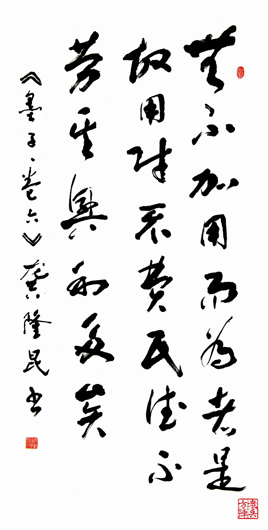 無不加用而為者是
故用財不費民德不
勞其興利多矣
《墨子·卷六》龔隆昆書